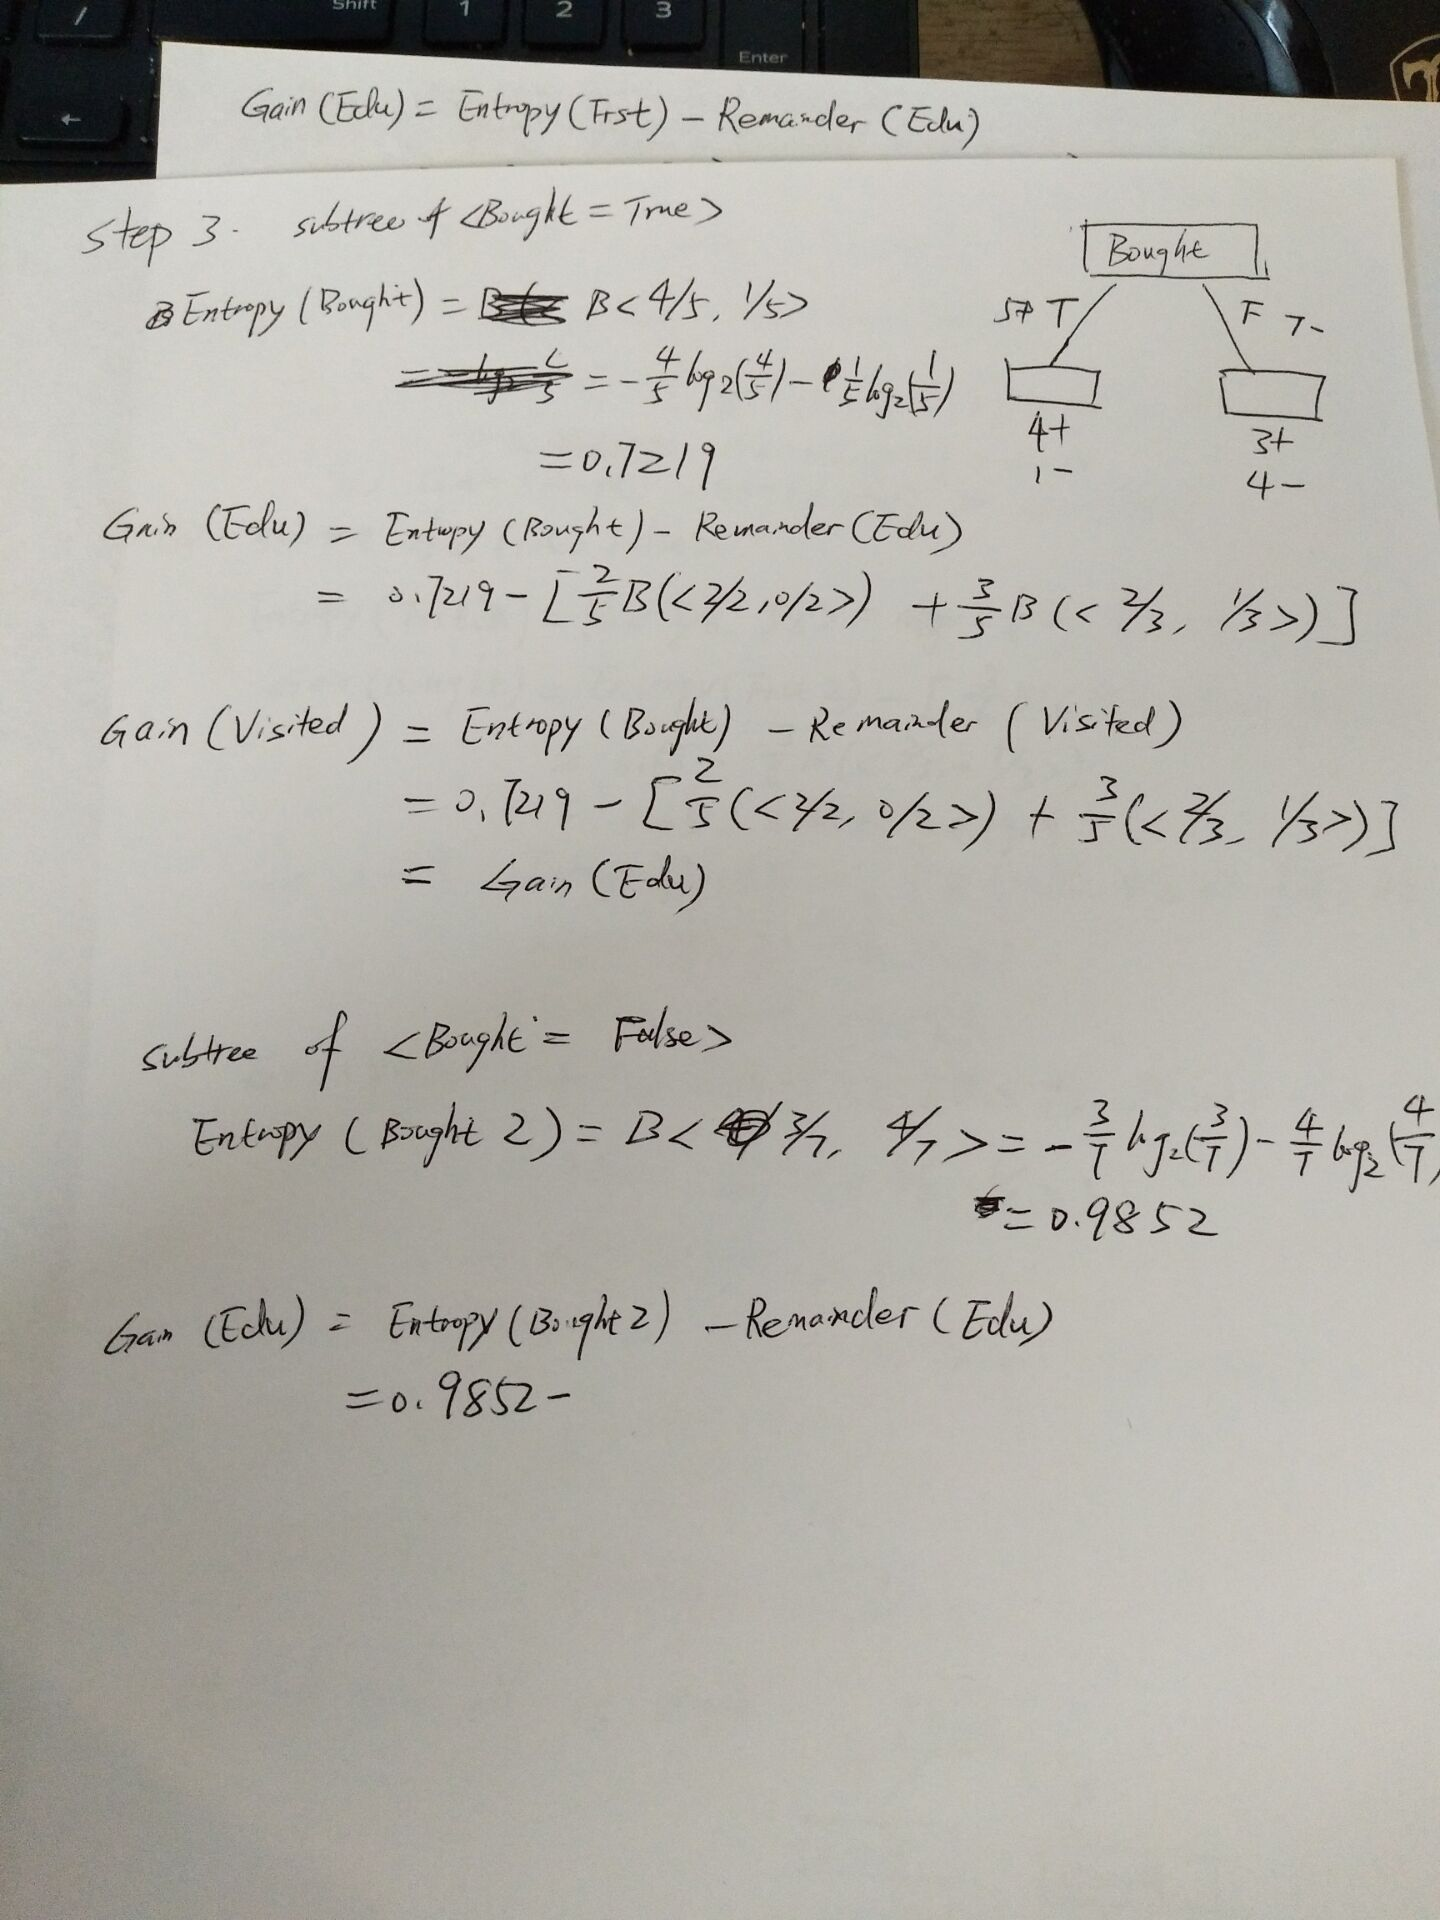 Shift
/
1
2
3
Enter
←
Gain (Edu) = Entropy (Frst) - Remainder (Edu)
Step 3. subtree of <Bought = True>
Bought
Entropy (Bought) = B< 4/5, 1/5>
5+ T
F 7-
= -4/5 log2(4/5) - 1/5 log2(1/5)
4+
1-
3+
4-
= 0.7219
Gain (Edu) = Entropy (Bought) - Remainder (Edu)
= 0.7219 - [2/5 B(<2/2, 0/2>) + 3/5 B(<2/3, 1/3>)]
Gain (Visited) = Entropy (Bought) - Remainder (Visited)
= 0.7219 - [2/5 (<2/2, 0/2>) + 3/5 (<2/3, 1/3>)]
= Gain (Edu)
subtree of <Bought = False>
Entropy (Bought 2) = B< 3/7, 4/7> = -3/7 log2(3/7) - 4/7 log2(4/7)
= 0.9852
Gain (Edu) = Entropy (Bought 2) - Remainder (Edu)
= 0.9852 -